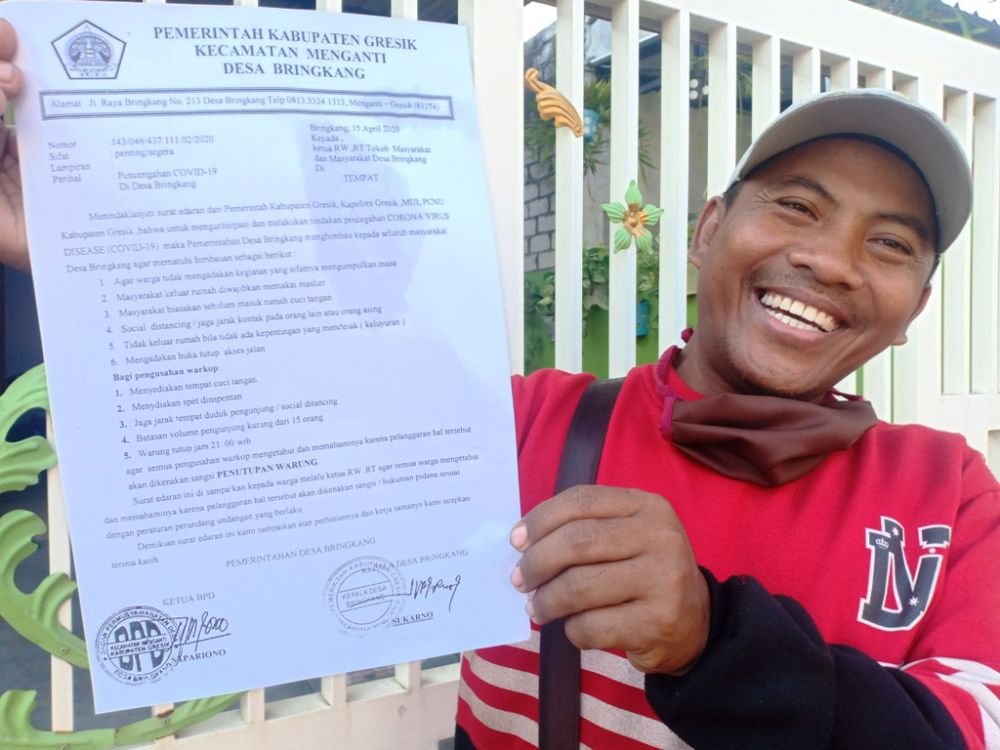 PEMERINTAH KABUPATEN GRESIK
KECAMATAN MENGANTI
DESA BRINGKANG
Alamat : Jl. Raya Bringkang No. 213 Desa Bringkang Telp.0813.3524 1313, Menganti – Gresik (61174)
Bringkang, 15 April 2020
Nomor :143/046/437.111.02/2020
Sifat : penting/segera
Lampiran :
Perihal : Pencengahan COVID-19
Di Desa Bringkang
Kepada ,
ketua RW ,RT Tokoh Masyarakat
dan Masyarakat Desa Bringkang
Di
TEMPAT
Menindaklanjuti surat edaran dari Pemerintah Kabupaten Gresik, Kapolres Gresik ,MUI, PCNU
Kabupaten Gresik ,bahwa untuk mengantisipasi dan melakukan tindakan pencegahan CORONA VIRUS
DISEASE (COVID-19) maka Pemerintahan Desa Bringkang menghimbau kepada seluruh masyarakat
Desa Bringkang agar mematuhi himbauan sebagai berikut :
1. Agar warga tidak mengadakan kegiatan yang sifatnya mengumpulkan masa
2. Masyarakat keluar rumah diwajibkan memakai masker
3. Masyarakat biasakan sebelum masuk rumah cuci tangan
4. Social distancing / jaga jarak kontak pada orang lain atau orang asing
5. Tidak keluar rumah bila tidak ada kepentingan yang mendesak ( keluyuran )
6. Mengadakan buka tutup akses jalan
Bagi pengusahan warkop:
1. Menyediakan tempat cuci tangan,
2. Menydiakan spet dinspentan
3. Jaga jarak tempat duduk pengunjung / social ditancing
4. Batasan volume pengunjung kurang dari 15 orang
5. Warung tutup jam 21: 00 wib
agar semua pengusahan warkop mengetahui dan memahaminya karena pelanggaran hal tersebut
akan dikenakan sangsi PENUTUPAN WARUNG
Surat edaran ini di sampaikan kepada warga melalu ketua RW .RT agar semua warga mengetahui
dan memahaminya karena pelanggaran hal tersebut akan dikenakan sangsi / hukuman pidana sesuai
dengan peraturan perundang undangan yang berlaku
Demikian surat edaran ini kami sampaikan atas perhatiannya dan kerja samanya kami ucapkan
terima kasih
PEMERINTAHAN DESA BRINGKANG
KETUA BPD
KEPALA DESA BRINGKANG
KEPALA DESA
BRINGKANG
SUKARNO
BPD
KECAMATAN MENGANTI
KABUPATEN GRESIK
DESA BRINGKANG